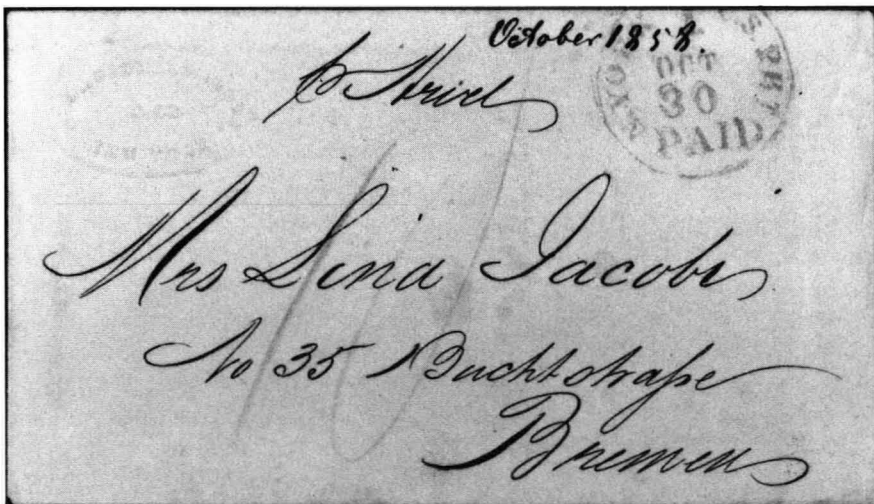 October 1858.
OCT
30
PAID
p Ariel
Mrs Lina Jacobi
No 35 Buchtstraße
Bremen